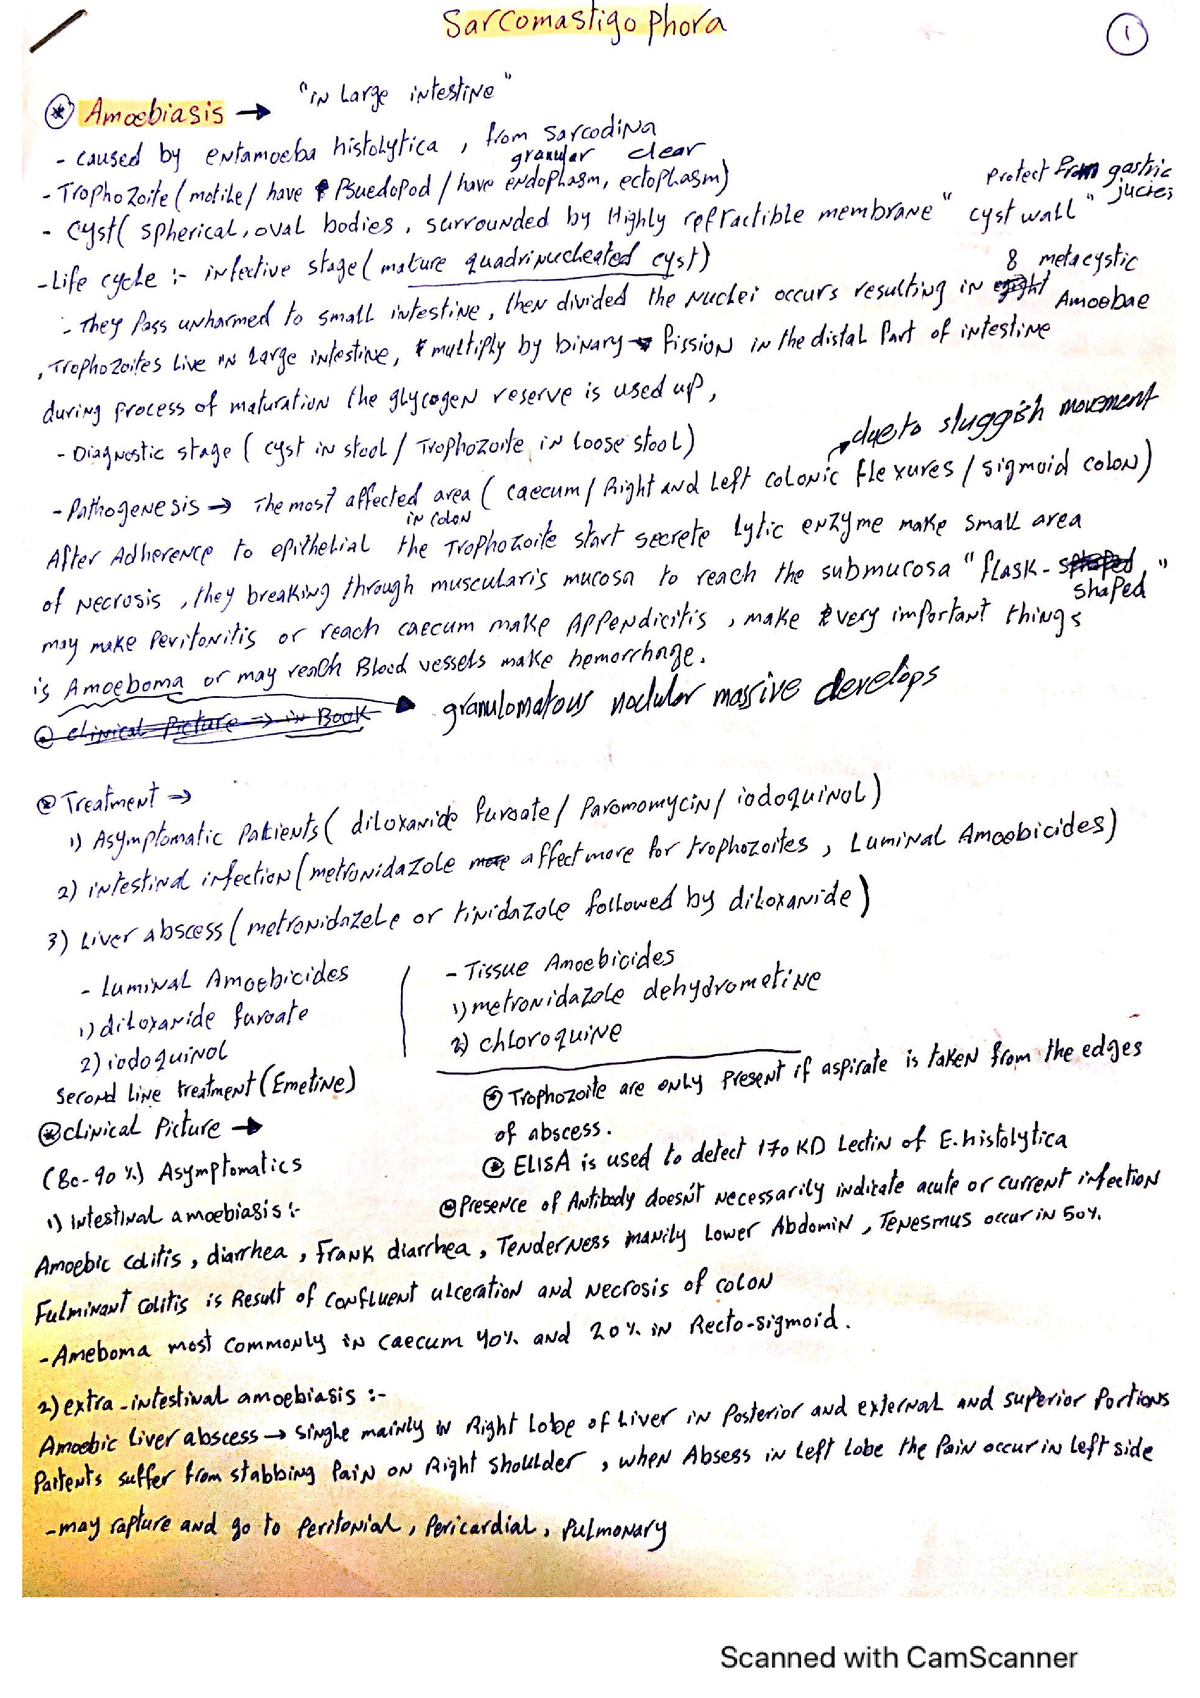 Sarcomastigophora
1
* Amoebiasis → "in Large intestine"
- caused by entamoeba histolytica , from Sarcodina
granular clear
- Trophozoite (motile / have Psuedopod / have endoplasm, ectoplasm)
Protect from gastric jucies
- Cyst( spherical, oval bodies , surrounded by Highly refractible membrane " cyst wall "
- Life cycle :- infective stage ( mature quadrinucleated cyst)
8 metacystic
- They Pass unharmed to small intestine , then divided the Nuclei occurs resulting in eight Amoebae
, Trophozoites Live in Large intestine, multiply by binary fission in the distal Part of intestine
during process of maturation the glycogen reserve is used up ,
due to sluggish movement
- Diagnostic stage ( cyst in stool / Trophozoite in Loose stool)
- Pathogenesis → The most affected area ( caecum / Right and Left colonic flexures / sigmoid colon)
in colon
After Adherence to epithelial the Trophozoite start secrete Lytic enzyme make small area
of Necrosis , they breaking through muscularis mucosa to reach the submucosa " flask - shaped "
shaped
may make Peritonitis or reach caecum make Appendicitis , make very important things
is Amoeboma or may reach Blood vessels make hemorrhage.
clinical Picture → in Book
granulomatous nodular massive develops
Treatment →
1) Asymptomatic Patients ( diloxanide furoate / Paromomycin / iodoquinol)
2) intestinal infection (metronidazole more affect more for trophozoites , Luminal Amoebicides)
3) Liver abscess (metronidazole or tinidazole followed by diloxanide)
- Luminal Amoebicides
1) diloxanide furoate
2) iodoquinol
Second Line treatment (Emetine)
- Tissue Amoebicides
1) metronidazole dehydrometine
2) chloroquine
Trophozoite are only Present if aspirate is taken from the edges
of abscess.
ELISA is used to detect 170 KD Lectin of E.histolytica
Presence of Antibody doesn't necessarily indicate acute or current infection
clinical Picture →
(80-90 %) Asymptomatics
1) intestinal amoebiasis :-
Amoebic colitis , diarrhea , Frank diarrhea , Tenderness manily Lower Abdomin , Tenesmus occur in 50%.
Fulminant colitis is Result of confluent ulceration and necrosis of colon
- Ameboma most commonly in caecum 40% and 20% in Recto-sigmoid .
2) extra-intestinal amoebiasis :-
Amoebic Liver abscess → Singhe mainly in Right Lobe of Liver in Posterior and external and superior Portions
Patients suffer from stabbing Pain on Right shoulder , when Absess in Left Lobe the Pain occur in Left side
- may rapture and go to Peritonial , Pericardial , Pulmonary
Scanned with CamScanner